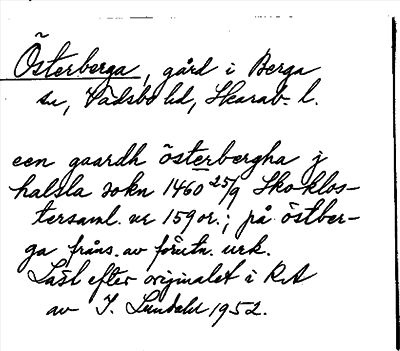 Österberga, gård i Berga
sn, Vadsbo hd, Skarab. l.
een gaardh österbergha j
halsla sokn 1460 25/9 Skoklos-
tersaml. nr 159 or.; på östber-
ga från s. av förutn. urk.
Läst efter originalet i RA
av I. Lundahl 1952.